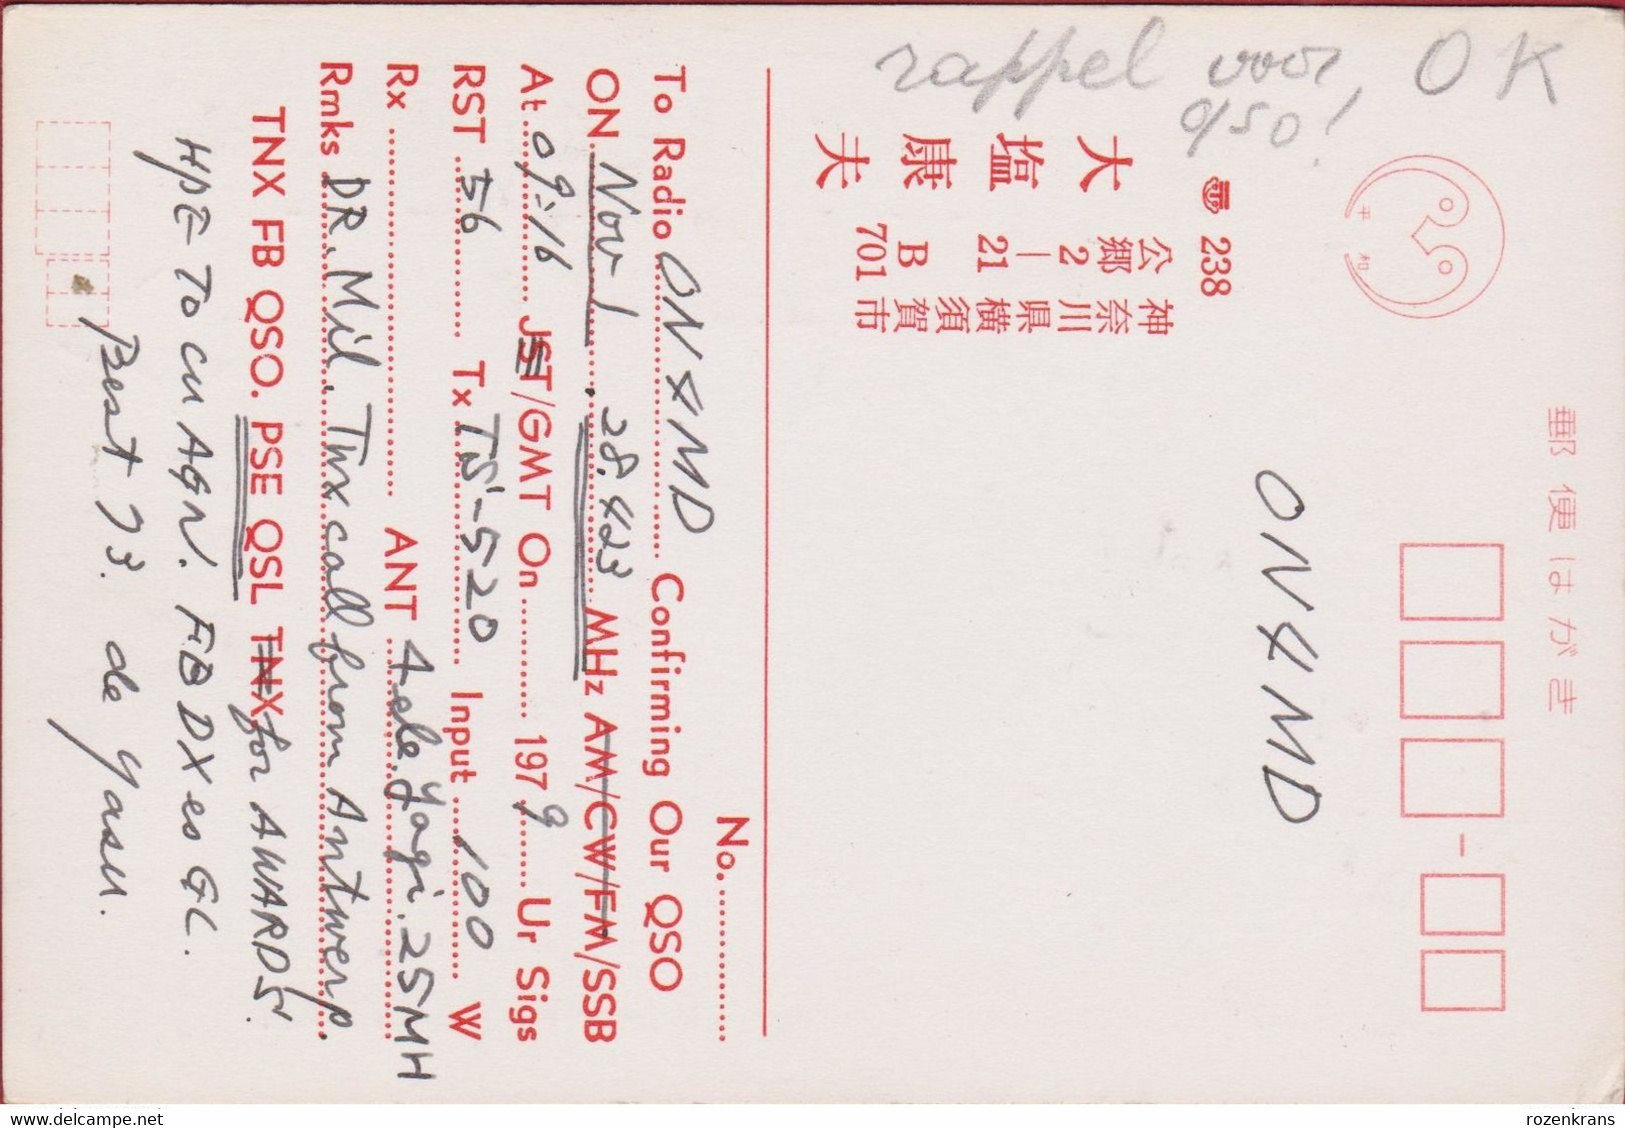 rappel voor, OK
qso!
郵便はがき
平和
238
神奈川県横須賀市
公郷2-21 B 701
大塩康夫
ON4MD
No.
To Radio ON4MD Confirming Our QSO
ON Nov 1. 28.423 MHz AM/CW/FM/SSB
At 09:16 JST/GMT On 1979 Ur Sigs
RST 56 Tx TS-520 Input 100 W
Rx ANT 4ele. Yagi. 25MH
Rmks DR. Mil. Tnx call from Antwerp.
TNX FB QSO. PSE QSL TNX for AWARDS.
HPE TO CU AGN. FB DX es GL.
Best 73. de Yasu.
delcampe.net
rozenkrans